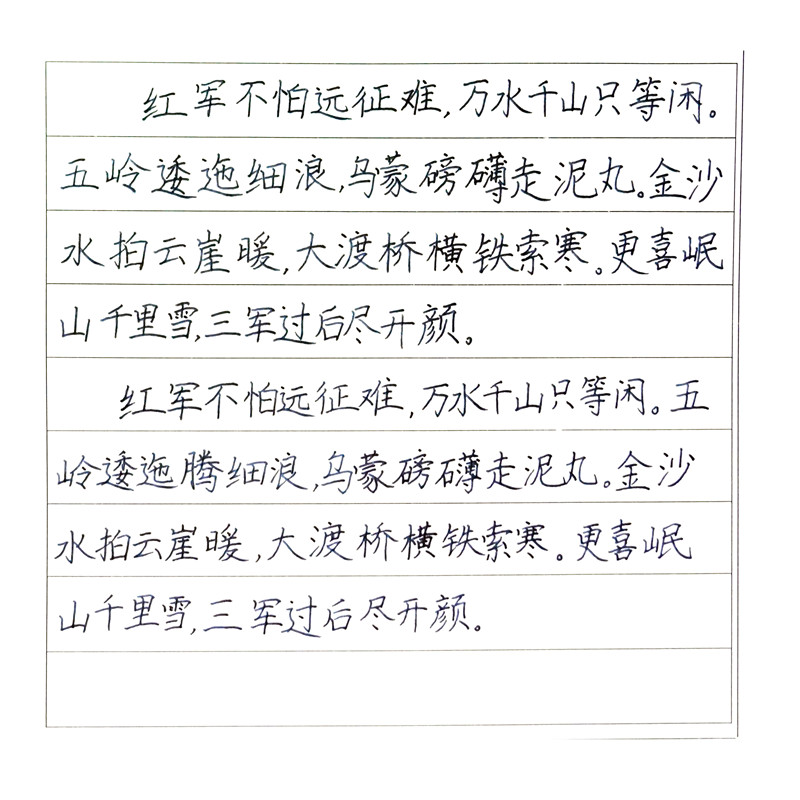 红军不怕远征难,万水千山只等闲。
五岭逶迤细浪,乌蒙磅礴走泥丸。金沙
水拍云崖暖,大渡桥横铁索寒。更喜岷
山千里雪,三军过后尽开颜。
红军不怕远征难,万水千山只等闲。五
岭逶迤腾细浪,乌蒙磅礴走泥丸。金沙
水拍云崖暖,大渡桥横铁索寒。更喜岷
山千里雪,三军过后尽开颜。